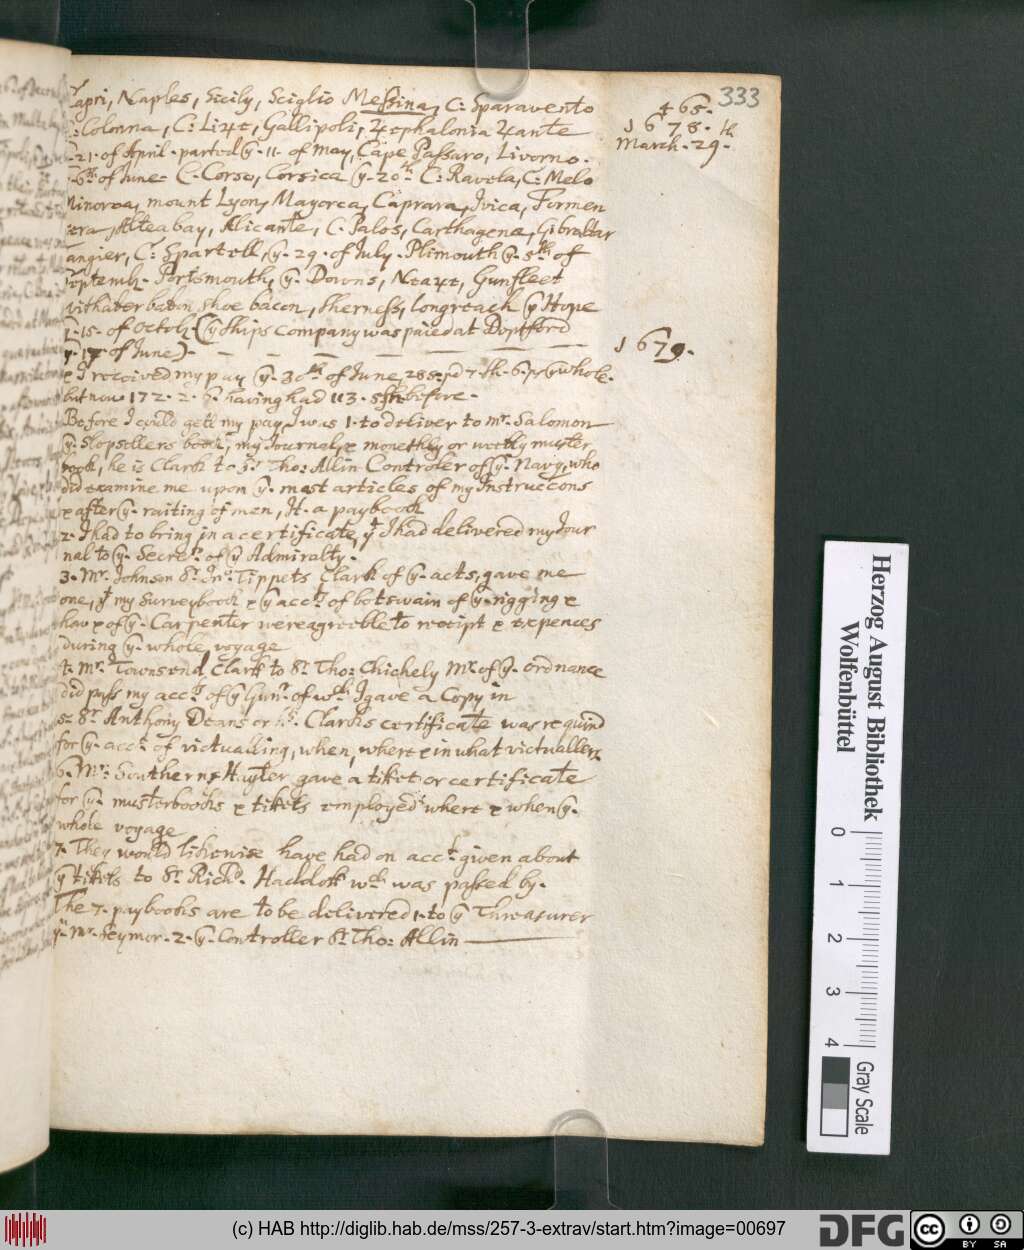 333
465.
1678. st
March. 29.
Capri, Naples, Sicily, Sciglio Messina, C: Sparavento
C: Colonna, C: Lize, Gallipoli, Zephalonia Zante
21. of April. parted ye. 11. of may, Cape Passaro, Livorno.
6th of June. C. Corso, Corsica ye. 20th C: Ravela, C: Melo
Minorca, mount Lyon, Mayorca, Caprara, Ivica, Formen
tera, Altea bay, Alicante, C. Palos, Carthagena, Gibraltar
Tangier, C: Spartell, ye. 29. of July. Plimouth ye. 5th of
Septemb. Portsmouth, ye. Downs, Neaze, Gunfleet
whitaker bacon, shoe bacon, Sherness, longreach ye Hope
ye. 15. of Octob. (ye Ships company was paied at Deptford
ye. 17 of June). — — — — — — —
1679.
& I received my pay ye. 30th of June, 285. pd 7. sh. 6. p ye whole.
but now 172. 2. 6. having had 113. 5 sh. before.
Before I could gett my pay, I was 1. to deliver to mr. Salomon
ye. slopsellers book, my Journal, & monethly or weekly muster
book, he is Clark to Sr Tho: Allin Controler of ye. Navy, who
did examine me upon ye. most articles of my Instruccons
& after ye. raiting of men, It. a paybook
2. I had to bring in a certificate, yt I had delivered my Jour
nal to ye. Secret. of ye Admiralty.
3. Mr. Johnson Sr. Jno. Tippets Clark of ye. acts, gave me
one, yt my Surveybook & ye acct. of botswain of ye. rigging &
& of ye. Carpenter were agreeble to receipt & expences
during ye. whole voyage
4. Mr. Townsend Clark to Sr. Tho: Chichely Mr. of ye. ordnance
did pass my acct. of ye Gunr. of wch I gave a Copy in
5. Sr. Anthony Deans or hs. Clarks certificate was required
for ye. acct. of victualling, when, where & in what victuallers
6. Mr. Southerne Hayter gave a tiket or certificate
for ye. musterbooks & tikets employed where & when ye.
whole voyage
7. They would likewise have had an acct. given about
ye tikets to Sr. Richd. Haddok wch was passed by.
The 7. paybooks are to be delivered 1. to ye Threasurer
Mr. Seymor. 2. ye. Controller Sr. Tho: Allin —
Herzog August Bibliothek
Wolfenbüttel
0 1 2 3 4
Gray Scale
(c) HAB http://diglib.hab.de/mss/257-3-extrav/start.htm?image=00697
DFG
cc BY SA